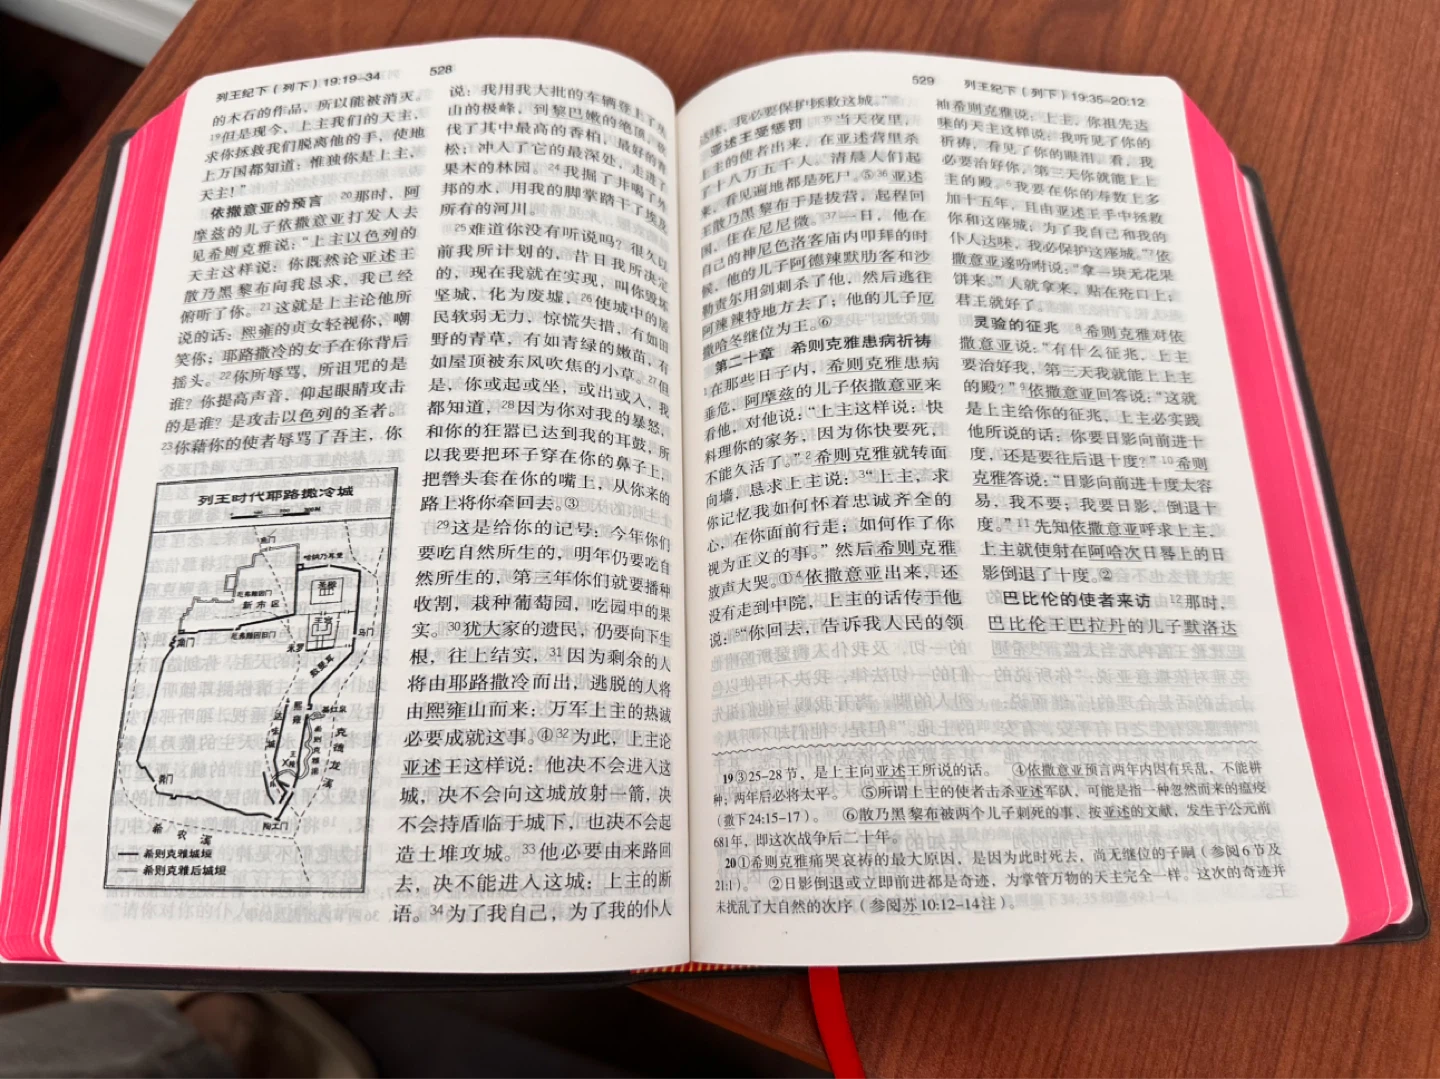 列王纪下（列下）19:19-34
528
的木石的作品，所以能被消灭。
19但是现今，上主我们的天主，
求你拯救我们脱离他的手，使地
上万国都知道：惟独你是上主，
天主！”
依撒意亚的预言 20那时，阿
摩兹的儿子依撒意亚打发人去
见希则克雅说：“上主以色列的
天主这样说：你既然论亚述王
散乃黑黎布向我恳求，我已经
俯听了你。21这就是上主论他所
说的话：熙雍的贞女轻视你，嘲
笑你；耶路撒冷的女子在你背后
摇头。22你所辱骂，所诅咒的是
谁？你提高声音，仰起眼睛攻击
的是谁？是攻击以色列的圣者。
23你藉你的使者辱骂了吾主，你
列王时代耶路撒冷城
鱼门
哈纳乃耳堡
厄弗辣因门
新市区
厄弗辣因旧门
圣殿
王宫
马门
米罗
敖斐耳
谷门
熙雍
达味城
基红泉
希则克雅渠
克德龙溪
粪门
陶工门
希农溪
希则克雅城垣
希则克雅后城垣
说：我用我大批的车辆登上了众
山的极峰，到黎巴嫩的绝顶，砍
伐了其中最高的香柏，最好的青
松；冲入了它的最深处，走进了
果木的林园。24我掘了井喝了外
邦的水，用我的脚掌踏干了埃及
所有的河川。
25难道你没有听说吗？很久以
前我所计划的，昔日我所决定
的，现在我就在实现，叫你毁坏
坚城，化为废墟，26使城中的居
民软弱无力，惊慌失措，有如田
野的青草，有如青绿的嫩苗，有
如屋顶被东风吹焦的小草。27但
是，你或起或坐，或出或入，我
都知道，28因为你对我的暴怒，
和你的狂嚣已达到我的耳鼓，所
以我要把环子穿在你的鼻子上，
把辔头套在你的嘴上，从你来的
路上将你牵回去。③
29这是给你的记号：今年你们
要吃自然所生的，明年仍要吃自
然所生的，第三年你们就要播种
收割，栽种葡萄园，吃园中的果
实。30犹大家的遗民，仍要向下生
根，往上结实，31因为剩余的人
将由耶路撒冷而出，逃脱的人将
由熙雍山而来：万军上主的热诚
必要成就这事。④32为此，上主论
亚述王这样说：他决不会进入这
城，决不会向这城放射一箭，决
不会持盾临于城下，也决不会起
造土堆攻城。33他必要由来路回
去，决不能进入这城：上主的断
语。34为了我自己，为了我的仆人
529
列王纪下（列下）19:35-20:12
达味，我必要保护拯救这城。”
亚述王受惩罚 35当天夜里，
上主的使者出来，在亚述营里杀
了十八万五千人，清晨人们起
来，看见遍地都是死尸。⑤36亚述
王散乃黑黎布于是拔营，起程回
国，住在尼尼微。37一日，他在
自己的神尼色洛客庙内叩拜的时
候，他的儿子阿德辣默肋客和沙
勒责尔用剑刺杀了他，然后逃往
阿辣辣特地方去了；他的儿子厄
撒哈冬继位为王。⑥
第二十章 希则克雅患病祈祷
1在那些日子内，希则克雅患病
垂危，阿摩兹的儿子依撒意亚来
看他，对他说：“上主这样说：快
料理你的家务，因为你快要死，
不能久活了。”2希则克雅就转面
向墙，恳求上主说：3“上主，求
你记忆我如何怀着忠诚齐全的
心，在你面前行走；如何作了你
视为正义的事。”然后希则克雅
放声大哭。①4依撒意亚出来，还
没有走到中院，上主的话传于他
说：5“你回去，告诉我人民的领
袖希则克雅说：上主，你祖先达
味的天主这样说：我听见了你的
祈祷，看见了你的眼泪。看，我
必要治好你，第三天你就能上上
主的殿。6我要在你的寿数上多
加十五年，且由亚述王手中拯救
你和这座城；为了我自己和我的
仆人达味，我必保护这座城。”7依
撒意亚遂吩咐说：“拿一块无花果
饼来。”人就拿来，贴在疮口上；
君王就好了。
灵验的征兆 8希则克雅对依
撒意亚说：“有什么征兆，上主
要治好我，第三天我就能上上主
的殿？”9依撒意亚回答说：“这就
是上主给你的征兆，上主必实践
他所说的话：你要日影向前进十
度，还是要往后退十度？”10希则
克雅答说：“日影向前进十度太容
易，我不要；我要日影，倒退十
度。”11先知依撒意亚呼求上主，
上主就使射在阿哈次日晷上的日
影倒退了十度。②
巴比伦的使者来访 12那时，
巴比伦王巴拉丹的儿子默洛达
19③25-28节，是上主向亚述王所说的话。 ④依撒意亚预言两年内因有兵乱，不能耕
种；两年后必将太平。 ⑤所谓上主的使者击杀亚述军队，可能是指一种忽然而来的瘟疫
（撒下24:15-17）。 ⑥散乃黑黎布被两个儿子刺死的事，按亚述的文献，发生于公元前
681年，即这次战争后二十年。
20①希则克雅痛哭哀祷的最大原因，是因为此时死去，尚无继位的子嗣（参阅6节及
21:1）。 ②日影倒退或立即前进都是奇迹，为掌管万物的天主完全一样。这次的奇迹并
未扰乱了大自然的次序（参阅苏10:12-14注）。